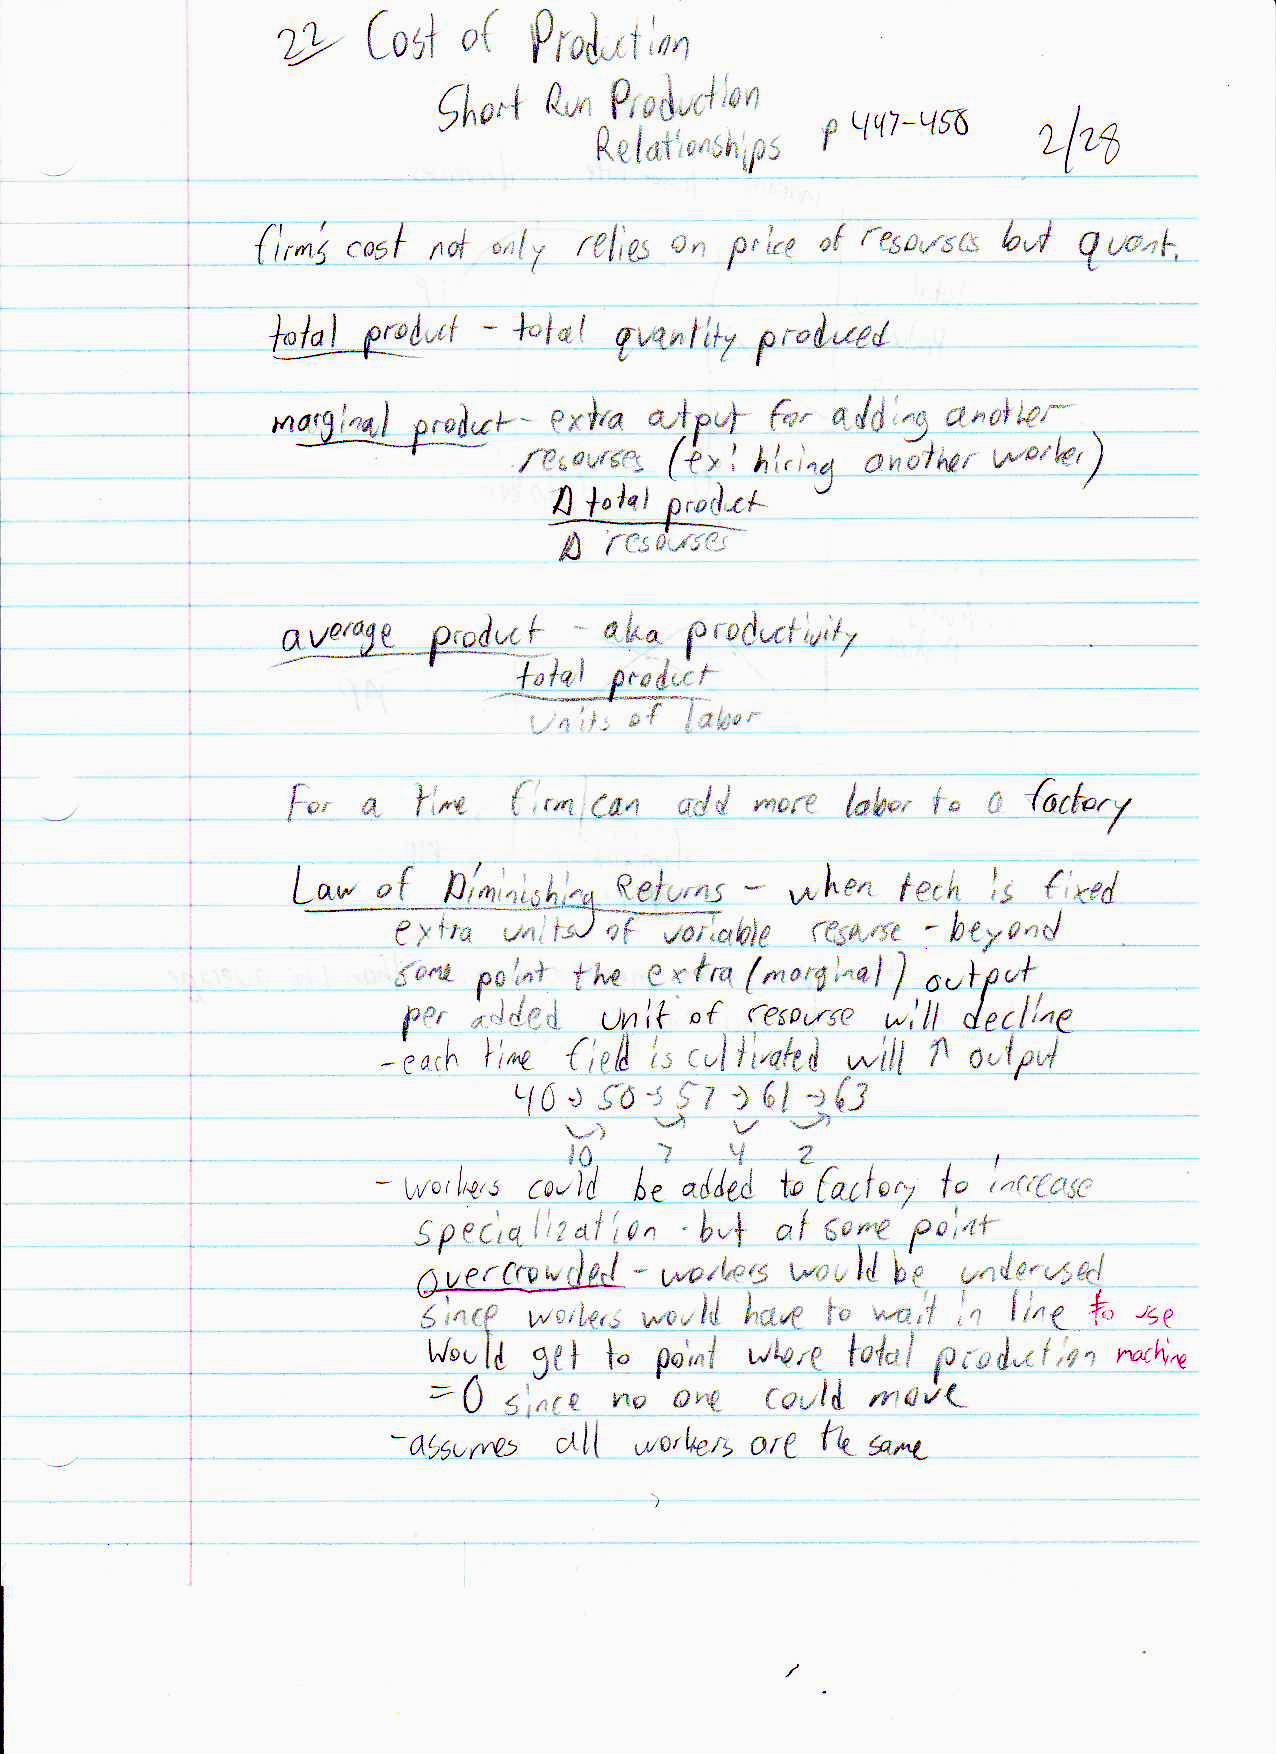 22 Cost of Production
Short Run Production
Relationships p 447-450 2/28
firm's cost not only relies on price of resourses but quant.
total product - total quantity produced
marginal product - extra output for adding another
resourses (ex: hiring another worker)
Δ total product
Δ resourses
average product - aka productivity
total product
units of labor
For a time firm can add more labor to a factory
Law of Diminishing Returns - when tech is fixed
extra units of variable resourse - beyond
some point the extra (marginal) output
per added unit of resourse will decline
- each time field is cultivated will ↑ output
40 → 50 → 57 → 61 → 63
10 7 4 2
- workers could be added to factory to increase
specialization - but at some point
overcrowded - workers would be underused
since workers would have to wait in line to use
Would get to point where total production machine
= 0 since no one could move
- assumes all workers are the same